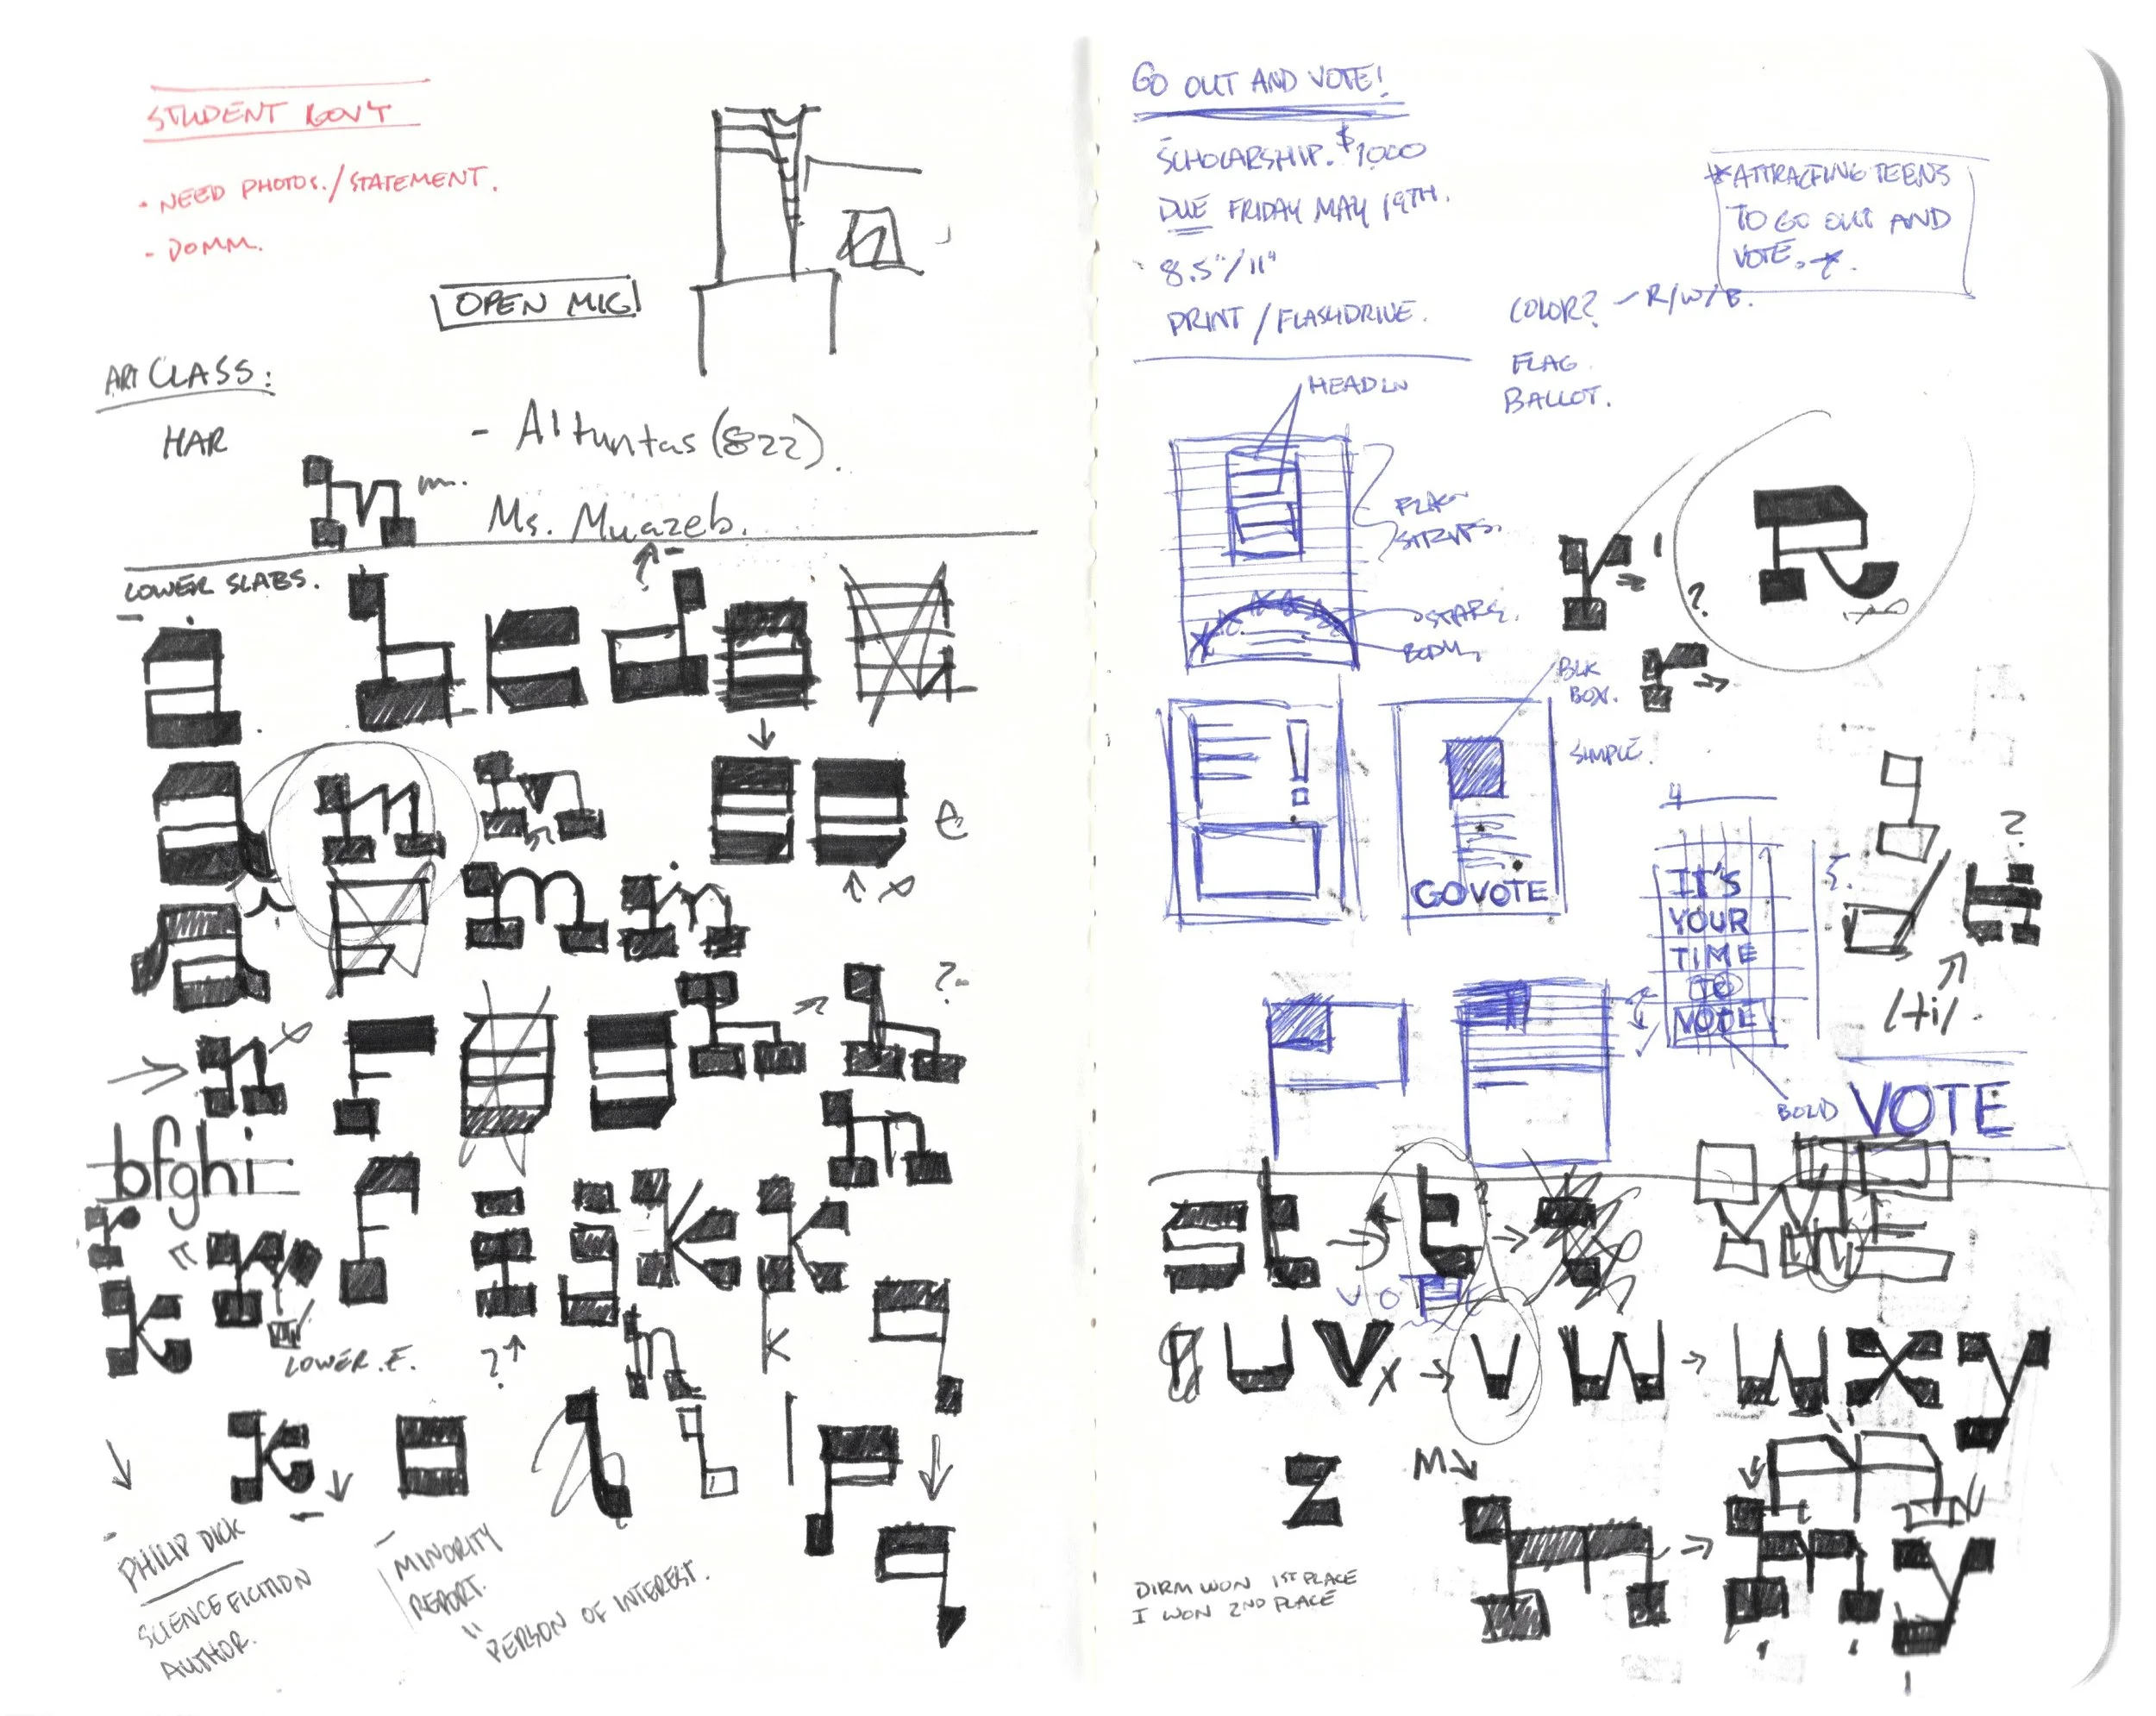 STUDENT GOV'T
• NEED PHOTOS./STATEMENT.
- DOMM.
OPEN MIC
ART CLASS:
HAR
- Altuntas (822).
m.
Ms. Muazeb.
LOWER SLABS.
e
?
bfghi
LOWER.E.
?
k
PHILIP DICK
SCIENCE FICTION
AUTHOR.
MINORITY
REPORT.
"PERSON OF INTEREST.
GO OUT AND VOTE!
SCHOLARSHIP. $1000
DUE FRIDAY MAY 19TH.
8.5"/11"
PRINT / FLASHDRIVE.
* ATTRACTING TEENS
TO GO OUT AND
VOTE. *.
COLOR? - R/W/B.
FLAG.
BALLOT.
HEADLN
FLAG
STRIPES.
STARS.
BODY
BLK
BOX.
SIMPLE.
!
GO VOTE
4
IT'S
YOUR
TIME
TO
VOTE
5.
?
?
/ti/
BOLD
VOTE
s t t
V O
u v v w w x y
z
M
DIRM WON 1ST PLACE
I WON 2ND PLACE